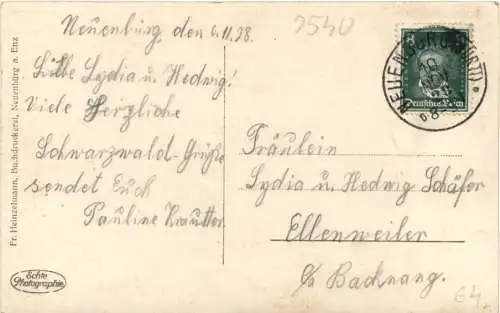 Neuenbürg, den 6.11.28.
2540
Liebe Lydia u. Hedwig!
Viele Herzliche
Schwarzwald-Grüße
sendet Euch
Pauline Krautter
Fr. Heinzelmann, Buchdruckerei, Neuenbürg a. Enz
Echte
Photographie
NEUENBÜRG (WÜRTT)
Deutsches Reich
Fräulein
Lydia u. Hedwig Schäfer
Ellenweiler
b/ Backnang.
64.